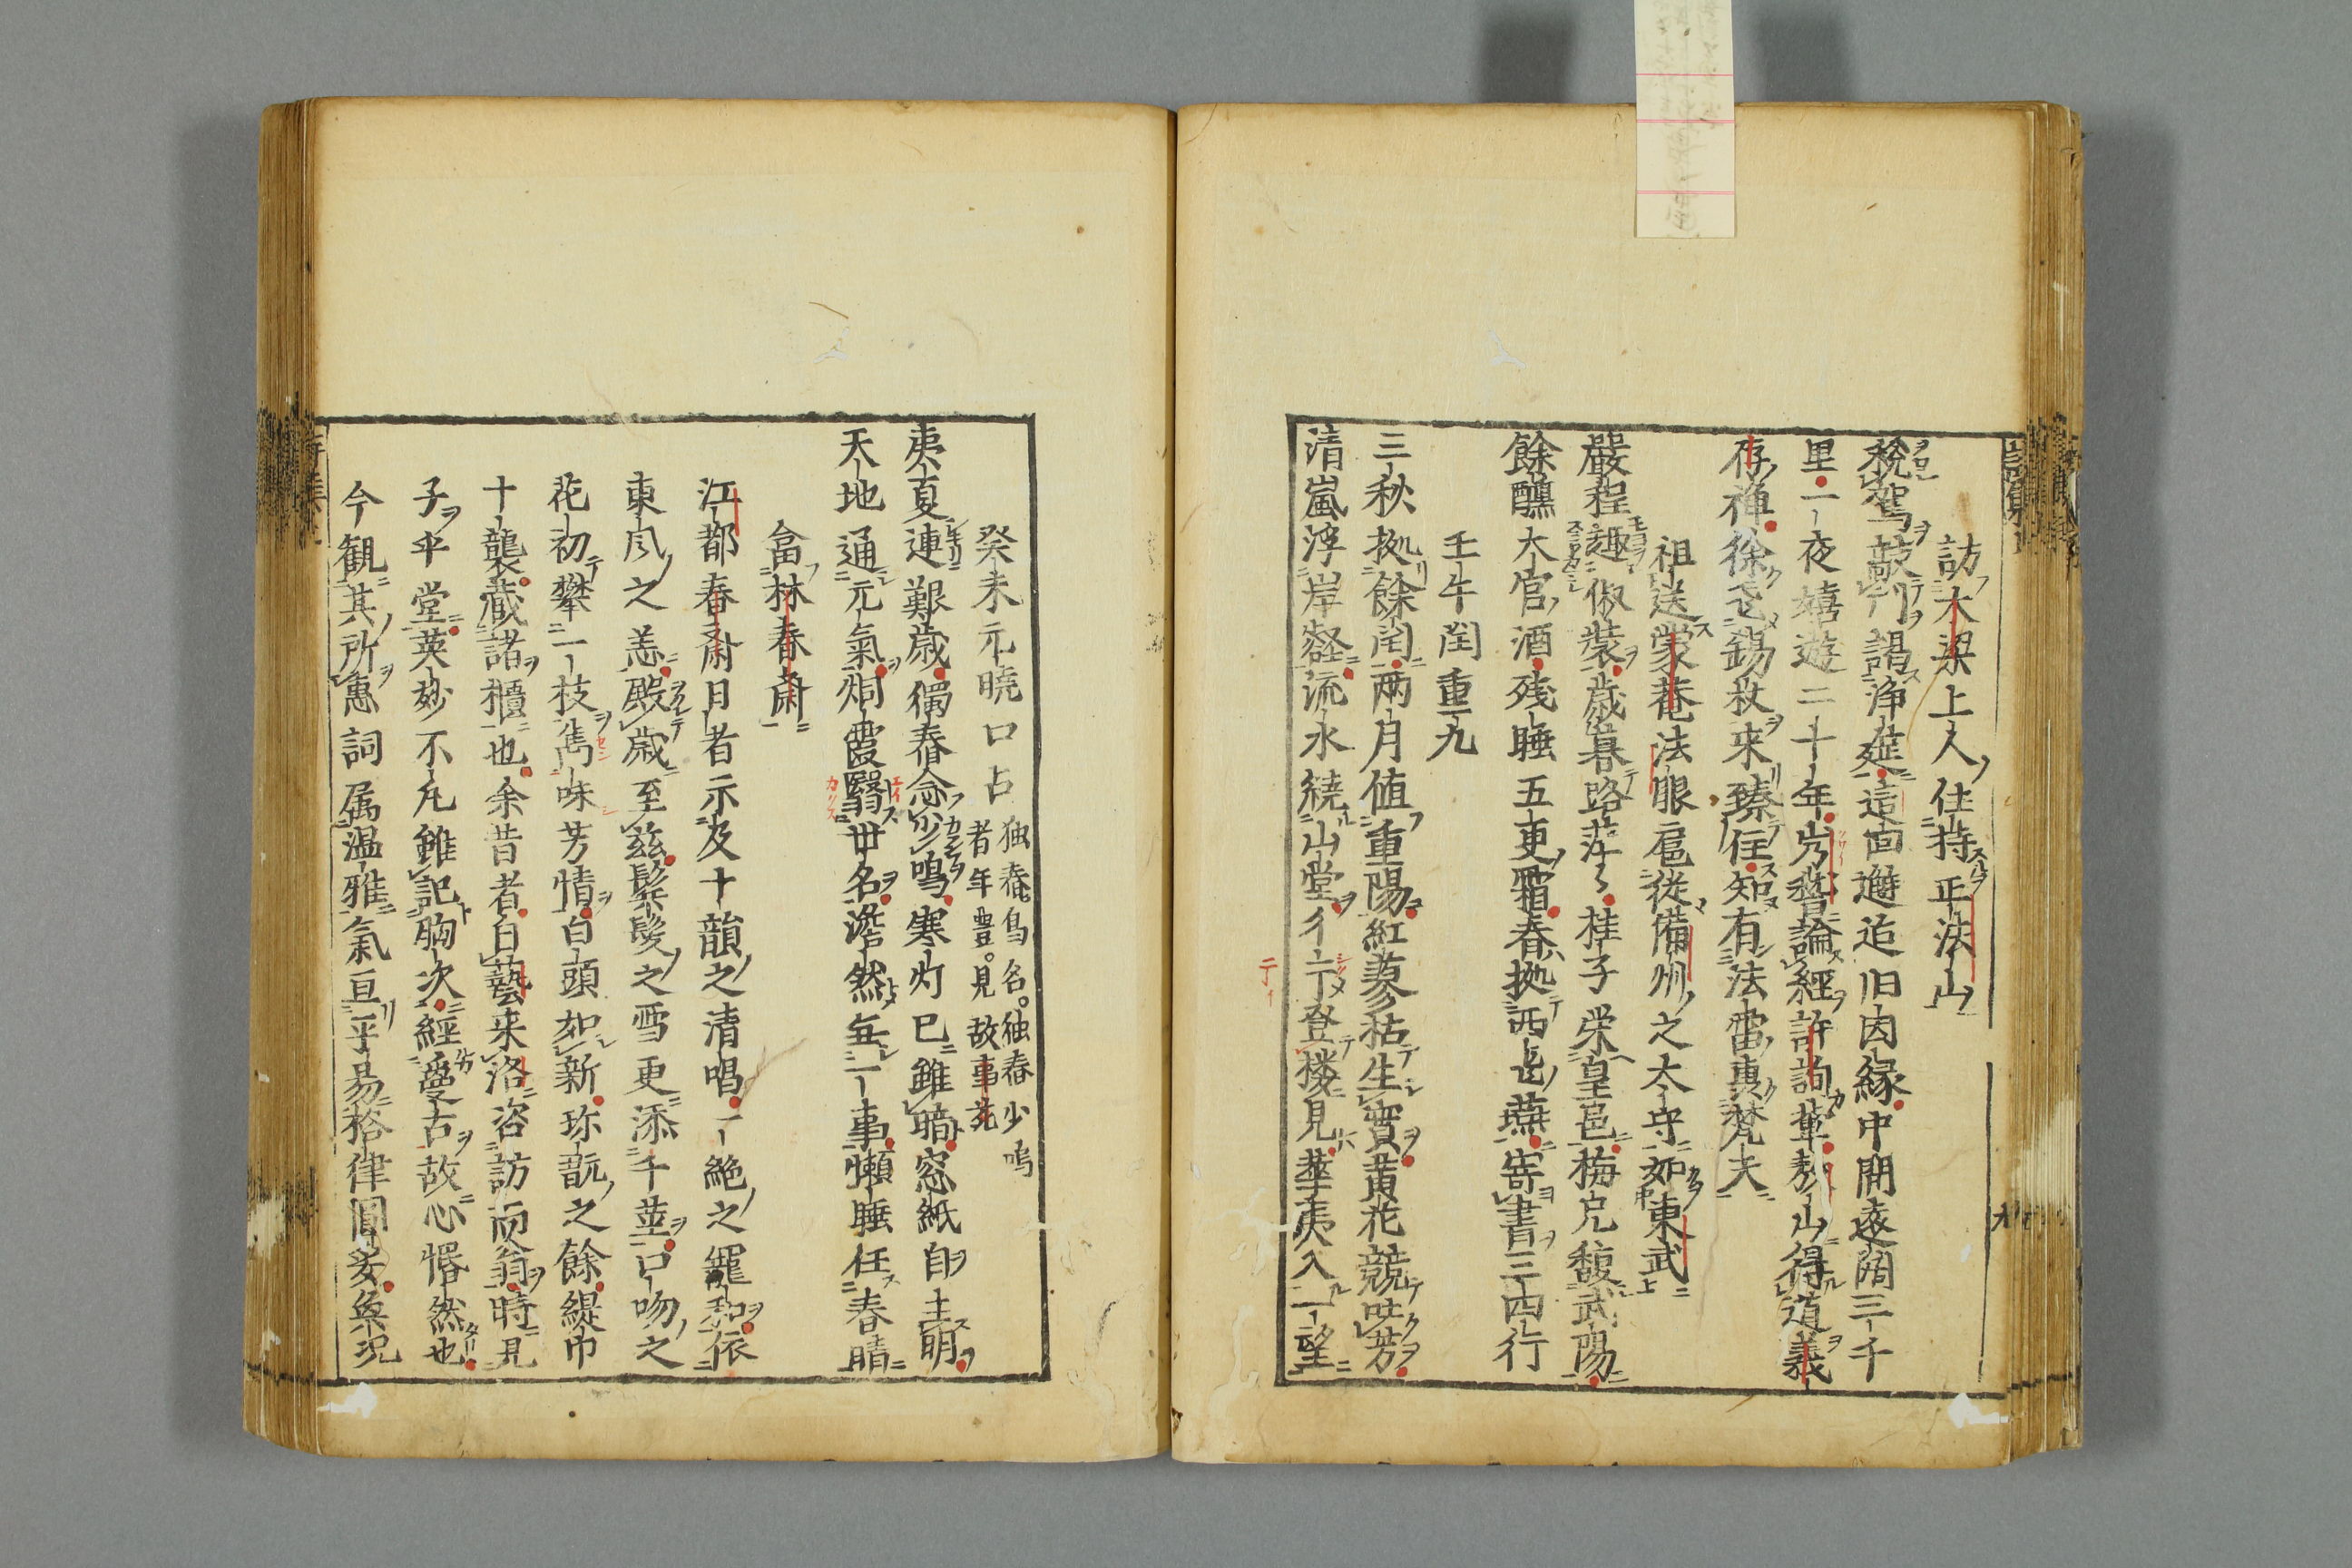 訪大梁上人住持正法山
税駕敲門謁浄莚這回邂逅旧因縁中間遠濶三千
里一夜嬉遊二十年嵗晢論經許詢輩敖山得道義
存禅徐飛錫杖来臻住知有法雷裏梵天
祖送蒙菴法眼扈従備州之太守如東武
嚴程趣俶装歳暮路茫〻桂子栄皇邑梅兄馥武陽
餘醺大官酒残睡五更霜春拠西也蕪寄書三四行
壬午閏重九
三秋拠餘閏両月値重陽紅蓼枯生實黄花競吐芳
清嵐浮岸磬流水繞山堂彳亍登楼見華夷入一望
癸未元暁口占
独舂鳥名独舂少鳴
者年豊見故事苑
夷夏連艱歳獨舂念少鳴寒灯已雖暗窓紙自生明
天地通元氣烟霞翳世名澹然無一事懶睡任春晴
畣林春斎
江都春斎日者示及十韻之清唱一絶之羅和依
東風之恙殿歳至茲鬓髪之雪更添千莖口吻之
花初攀一枝雋味芳情白頭如新珎翫之餘緹巾
十襲蔵諸櫃也余昔者白藝来洛咨訪而翁時見
子半堂英妙不凡雖記胸次經憂古故心惽然也
今観其所惠詞属温雅氣亘平易格律圓妥奐況